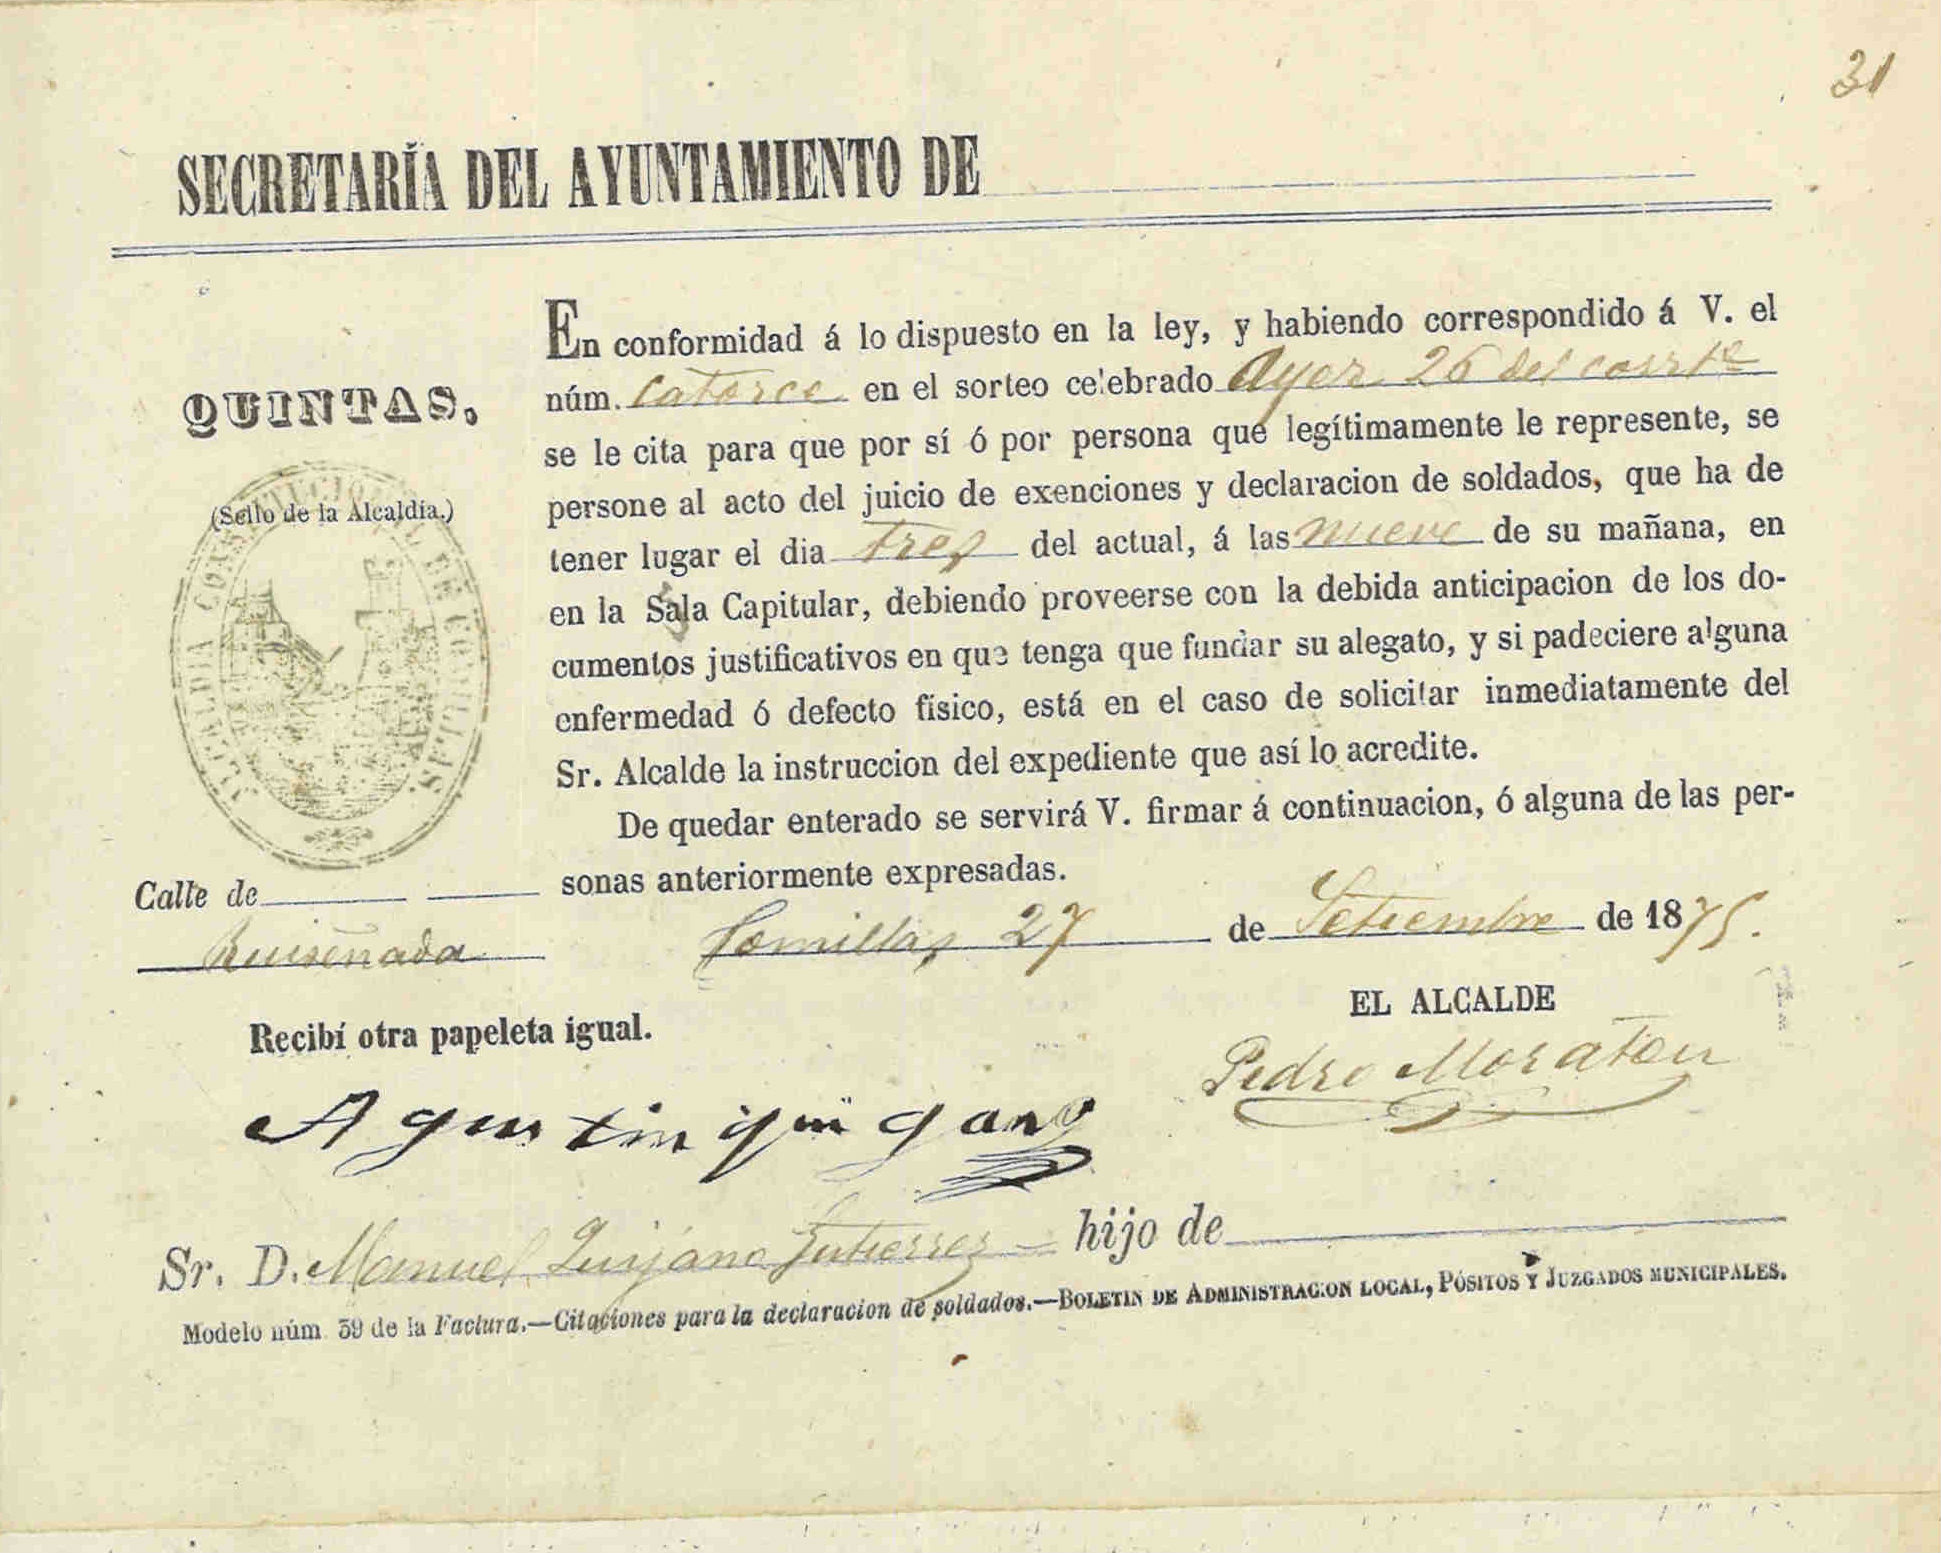 31
SECRETARÍA DEL AYUNTAMIENTO DE
QUINTAS.
(Sello de la Alcaldía.)
ALCALDIA CONSTITUCIONAL DE COMILLAS
En conformidad á lo dispuesto en la ley, y habiendo correspondido á V. el
núm. Catorce en el sorteo celebrado Ayer 26 del corrte
se le cita para que por sí ó por persona que legítimamente le represente, se
persone al acto del juicio de exenciones y declaracion de soldados, que ha de
tener lugar el dia tres del actual, á las nueve de su mañana, en
en la Sala Capitular, debiendo proveerse con la debida anticipacion de los do-
cumentos justificativos en que tenga que fundar su alegato, y si padeciere alguna
enfermedad ó defecto físico, está en el caso de solicitar inmediatamente del
Sr. Alcalde la instruccion del expediente que así lo acredite.
De quedar enterado se servirá V. firmar á continuacion, ó alguna de las per-
sonas anteriormente expresadas.
Calle de
Ruiseñada
Comillas 27 de Setiembre de 1875.
EL ALCALDE
Pedro Moraton
Recibí otra papeleta igual.
Agustin
Sr. D. Manuel Quijano Gutierrez hijo de
Modelo núm 39 de la Factura.—Citaciones para la declaracion de soldados.—BOLETIN DE ADMINISTRACION LOCAL, PÓSITOS Y JUZGADOS MUNICIPALES.